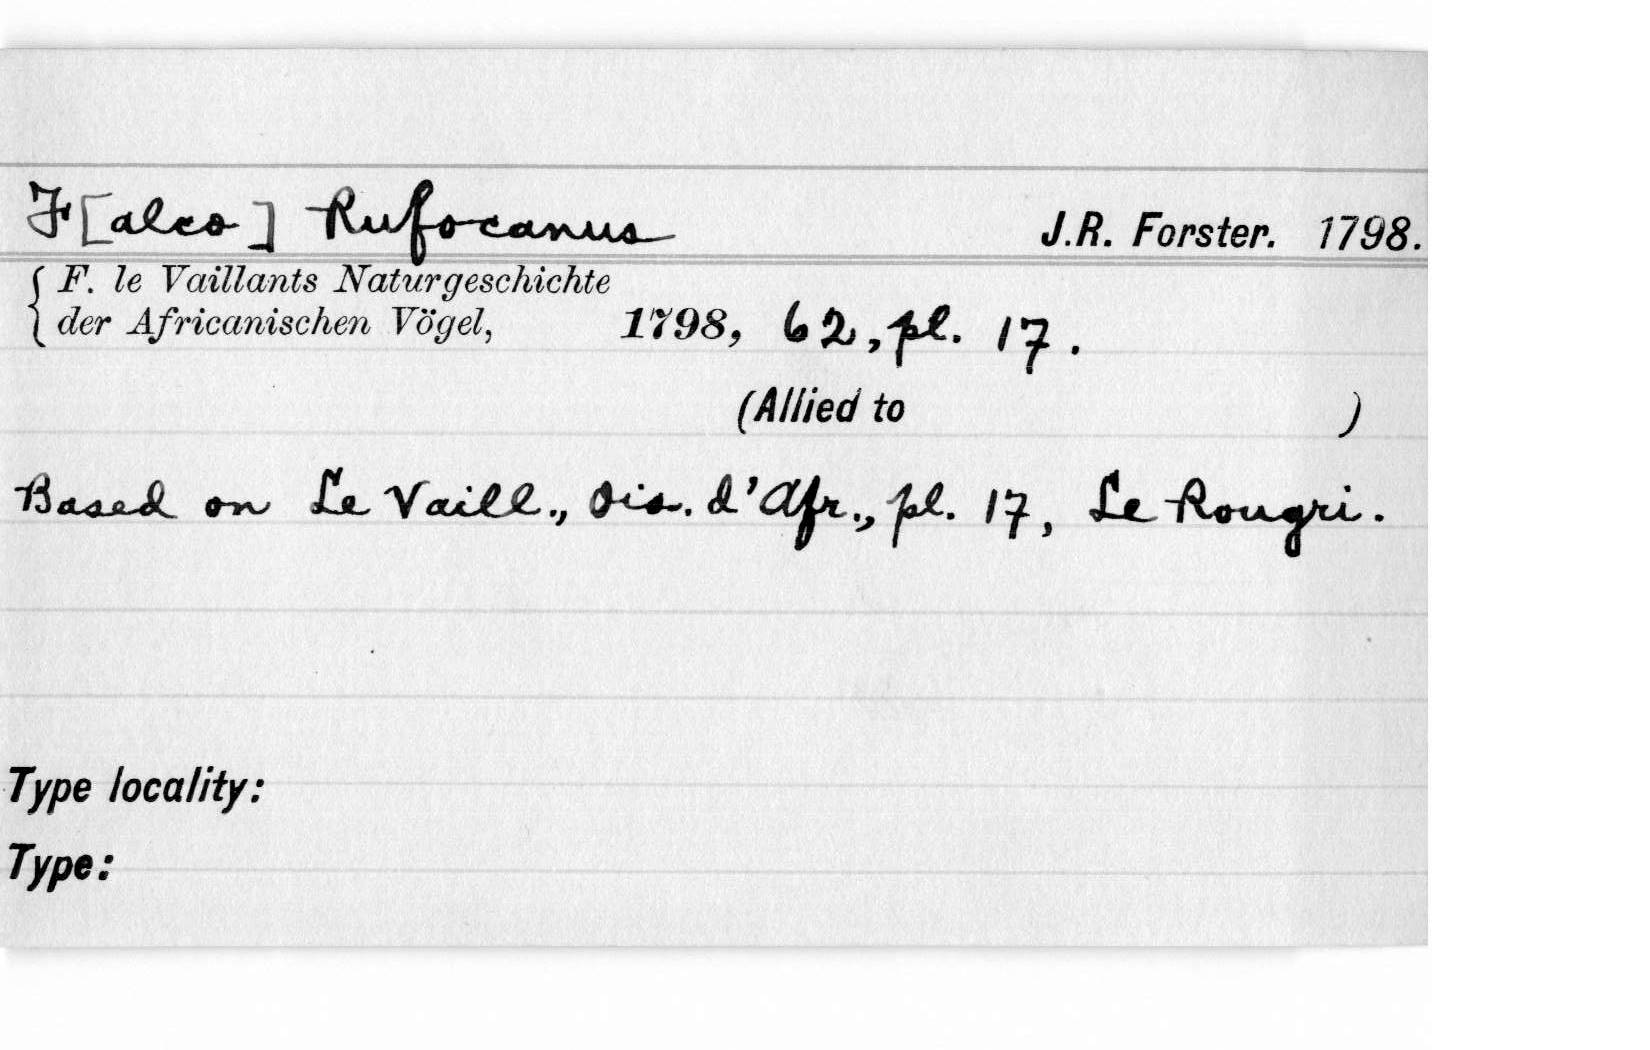 F[alco] Rufocanus J.R. Forster. 1798.
F. le Vaillants Naturgeschichte
der Africanischen Vögel, 1798, 62, pl. 17.
(Allied to )
Based on Le Vaill., Ois. d'Afr., pl. 17, Le Rougri.
Type locality:
Type: